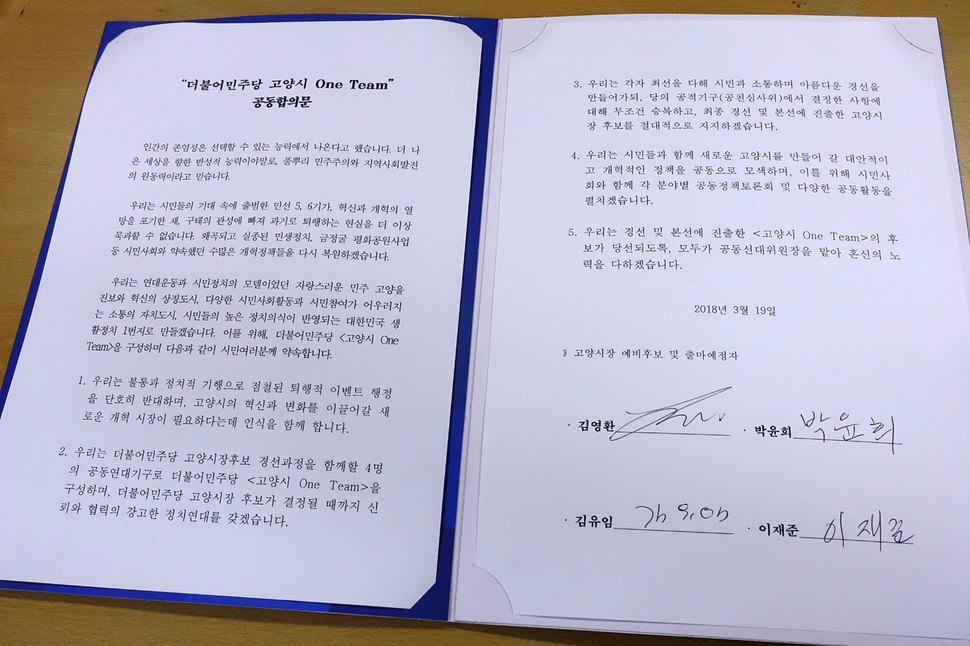 “더불어민주당 고양시 One Team”
공동합의문
인간의 존엄성은 선택할 수 있는 능력에서 나온다고 했습니다. 더 나
은 세상을 향한 반성적 능력이야말로, 풀뿌리 민주주의와 지역사회발전
의 원동력이라고 믿습니다.
우리는 시민들의 기대 속에 출범한 민선 5, 6기가, 혁신과 개혁의 열
망을 포기한 채, 구태의 관성에 빠져 과거로 퇴행하는 현실을 더 이상
묵과할 수 없습니다. 왜곡되고 실종된 민생정치, 금정굴 평화공원사업
등 시민사회와 약속했던 수많은 개혁정책들을 다시 복원하겠습니다.
우리는 연대운동과 시민정치의 모델이었던 자랑스러운 민주 고양을
진보와 혁신의 상징도시, 다양한 시민사회활동과 시민참여가 어우러지
는 소통의 자치도시, 시민들의 높은 정치의식이 반영되는 대한민국 생
활정치 1번지로 만들겠습니다. 이를 위해, 더불어민주당 <고양시 One
Team>을 구성하며 다음과 같이 시민여러분께 약속합니다.
1. 우리는 불통과 정치적 기행으로 점철된 퇴행적 이벤트 행정
을 단호히 반대하며, 고양시의 혁신과 변화를 이끌어갈 새
로운 개혁 시장이 필요하다는데 인식을 함께 합니다.
2. 우리는 더불어민주당 고양시장후보 경선과정을 함께할 4명
의 공동연대기구로 더불어민주당 <고양시 One Team>을
구성하며, 더불어민주당 고양시장 후보가 결정될 때까지 신
뢰와 협력의 강고한 정치연대를 갖겠습니다.
3. 우리는 각자 최선을 다해 시민과 소통하며 아름다운 경선을
만들어가되, 당의 공적기구(공천심사위)에서 결정한 사항에
대해 무조건 승복하고, 최종 경선 및 본선에 진출한 고양시
장 후보를 절대적으로 지지하겠습니다.
4. 우리는 시민들과 함께 새로운 고양시를 만들어 갈 대안적이
고 개혁적인 정책을 공동으로 모색하며, 이를 위해 시민사
회와 함께 각 분야별 공동정책토론회 및 다양한 공동활동을
펼치겠습니다.
5. 우리는 경선 및 본선에 진출한 <고양시 One Team>의 후
보가 당선되도록, 모두가 공동선대위원장을 맡아 혼신의 노
력을 다하겠습니다.
2018년 3월 19일
》 고양시장 예비후보 및 출마예정자
· 김영환 · 박윤희 박윤희
· 김유임 · 이재준 이재준